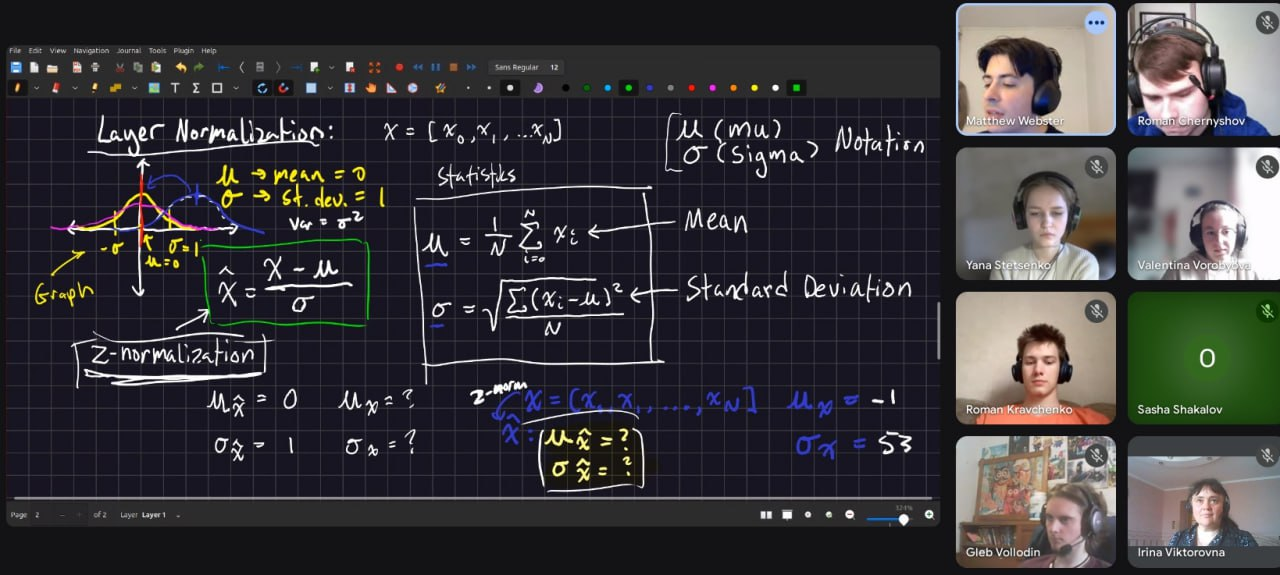 File Edit View Navigation Journal Tools Plugin Help
Sans Regular 12
T Σ
Layer Normalization: x = [x₀, x₁, ...x_N]
[μ (mu)
σ (sigma) Notation
μ → mean = 0
σ → st. dev. = 1
var = σ²
-σ σ=1
μ=0
Graph
x̂ = x - μ / σ
z-normalization
Statistiks
μ = 1/N Σ_{i=0}^{N} x_i ← Mean
σ = √(Σ(x_i - μ)² / N) ← Standard Deviation
μ_x̂ = 0 μ_x = ?
σ_x̂ = 1 σ_x = ?
z-norm x = [x₀, x₁, ..., x_N] μ_x = -1
x̂: μ_x̂ = ? σ_x = 53
σ_x̂ = ?
Page 2 of 2 Layer Layer 1
324%
Matthew Webster
Roman Chernyshov
Yana Stetsenko
Valentina Vorobyova
Roman Kravchenko
O
Sasha Shakalov
Gleb Vollodin
Irina Viktorovna